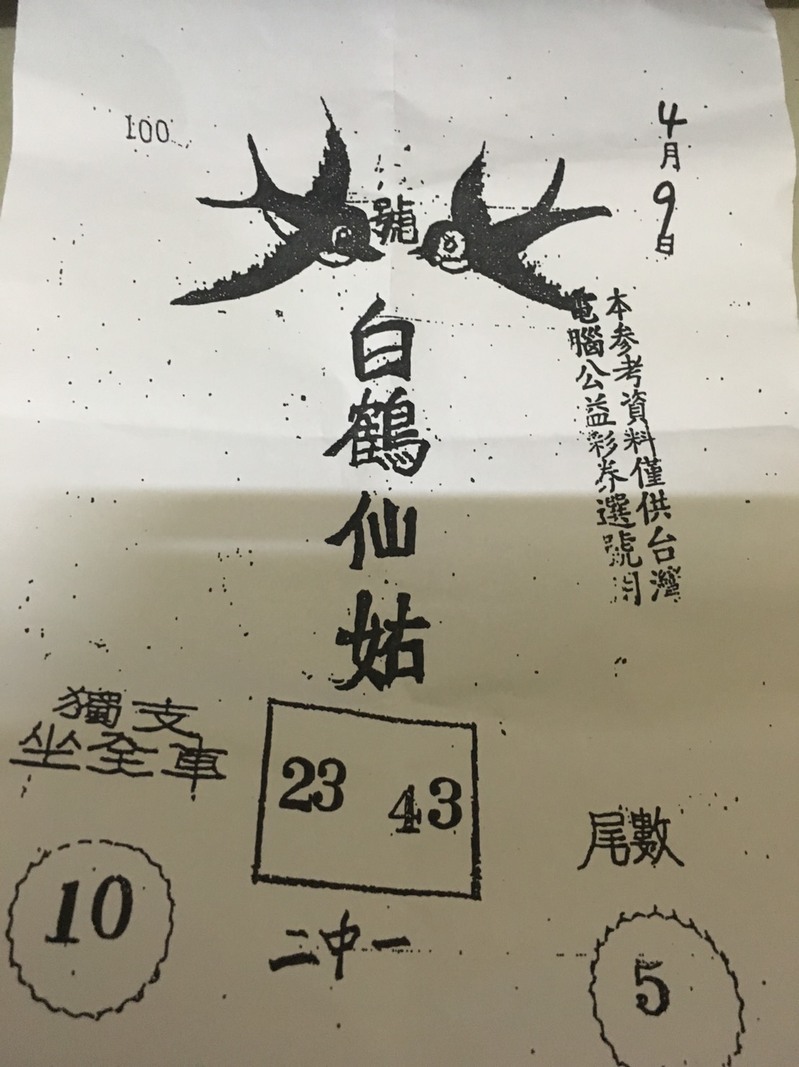 100
4月9日
號
白鶴仙姑
本参考資料僅供台灣
電腦公益彩券選號用
獨支
坐全車
10
23 43
二中一
尾數
5